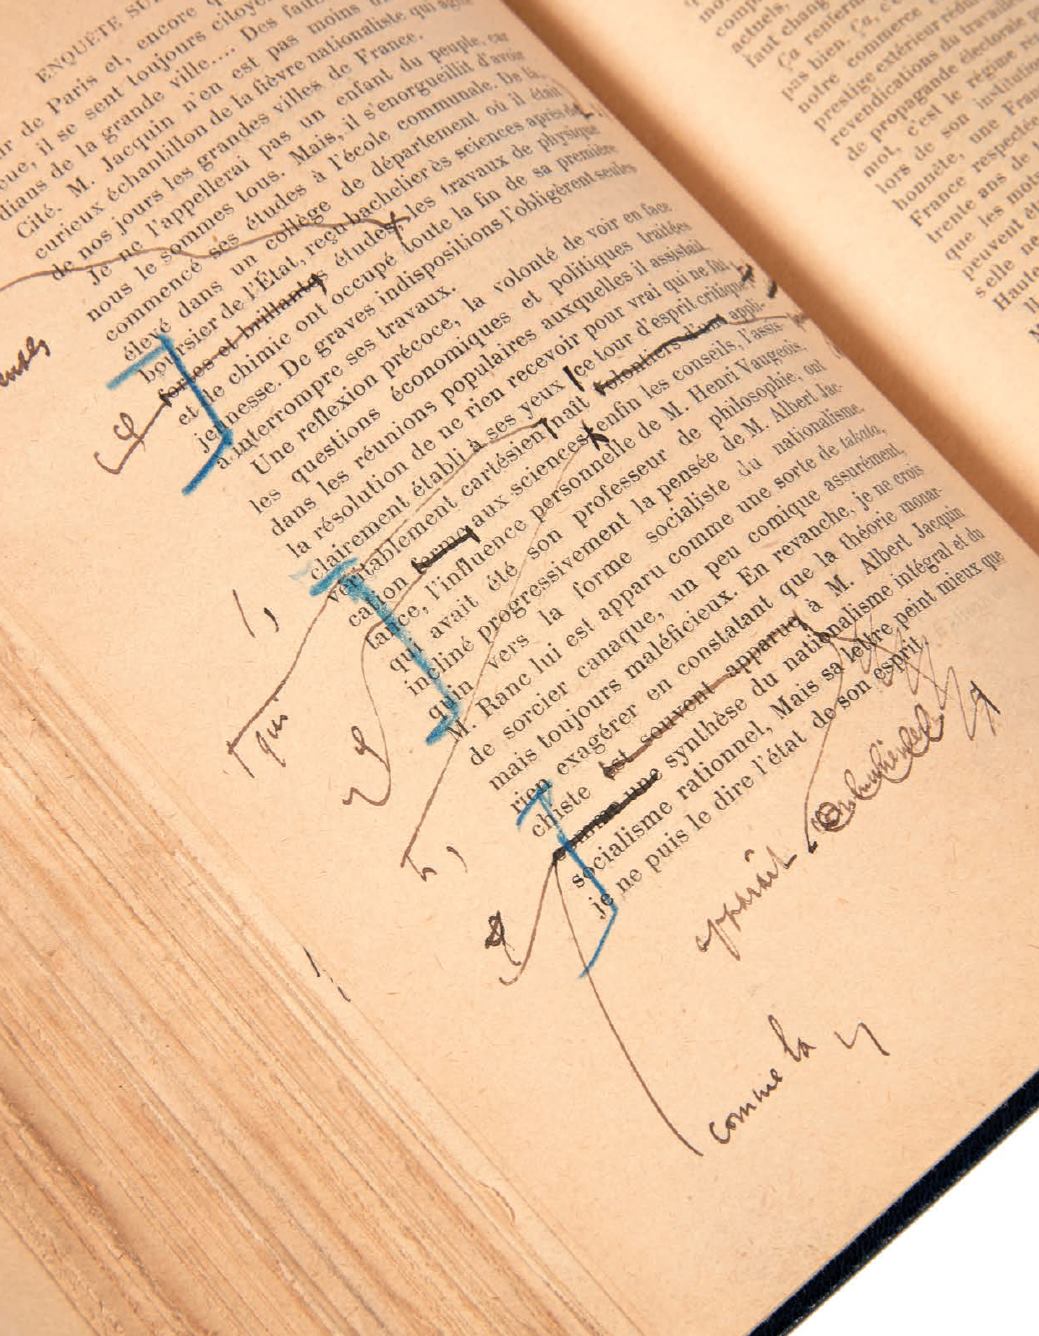 ENQUÊTE SU
de Paris et, encore q
il se sent toujours citoye
dians de la grande ville... Des fau
Cité. M. Jacquin n'en est pas moins
curieux échantillon de la fièvre nationaliste qui agite
de nos jours les grandes villes de France.
Je ne l'appellerai pas un enfant du peuple, car
nous le sommes tous. Mais, il s'enorgueillit d'avoir
commencé ses études à l'école communale. De là,
élevé dans un collège de département où il était
boursier de l'État, reçu bachelier ès sciences après de
fortes et brillantes études, les travaux de physique
et de chimie ont occupé toute la fin de sa première
jeunesse. De graves indispositions l'obligèrent seules
à interrompre ses travaux.
Une réflexion précoce, la volonté de voir en face
les questions économiques et politiques traitées
dans les réunions populaires auxquelles il assistait,
la résolution de ne rien recevoir pour vrai qui ne fût
clairement établi à ses yeux, ce tour d'esprit critique
véritablement cartésien naît volontiers d'une appli-
cation ferme aux sciences, enfin les conseils, l'assis-
tance, l'influence personnelle de M. Henri Vaugeois,
qui avait été son professeur de philosophie, ont
incliné progressivement la pensée de M. Albert Jac-
quin vers la forme socialiste du nationalisme.
M. Ranc lui est apparu comme une sorte de takata,
de sorcier canaque, un peu comique assurément,
mais toujours maléficieux. En revanche, je ne crois
rien exagérer en constatant que la théorie monar-
chiste est souvent apparue à M. Albert Jacquin
comme une synthèse du nationalisme intégral et du
socialisme rationnel. Mais sa lettre peint mieux que
je ne puis le dire l'état de son esprit.
qui
apparaît
comme la
actuels,
faut chang
Ça renferm
pas bien. Ça, c'e
notre commerce
prestige extérieur rédui
revendications du travaille
de propagande électorale p
mot, c'est le régime re
lors de son institution
honnête, une Fran
France respectée
trente ans de
que les mots
peuvent êt
selle ne
Haute